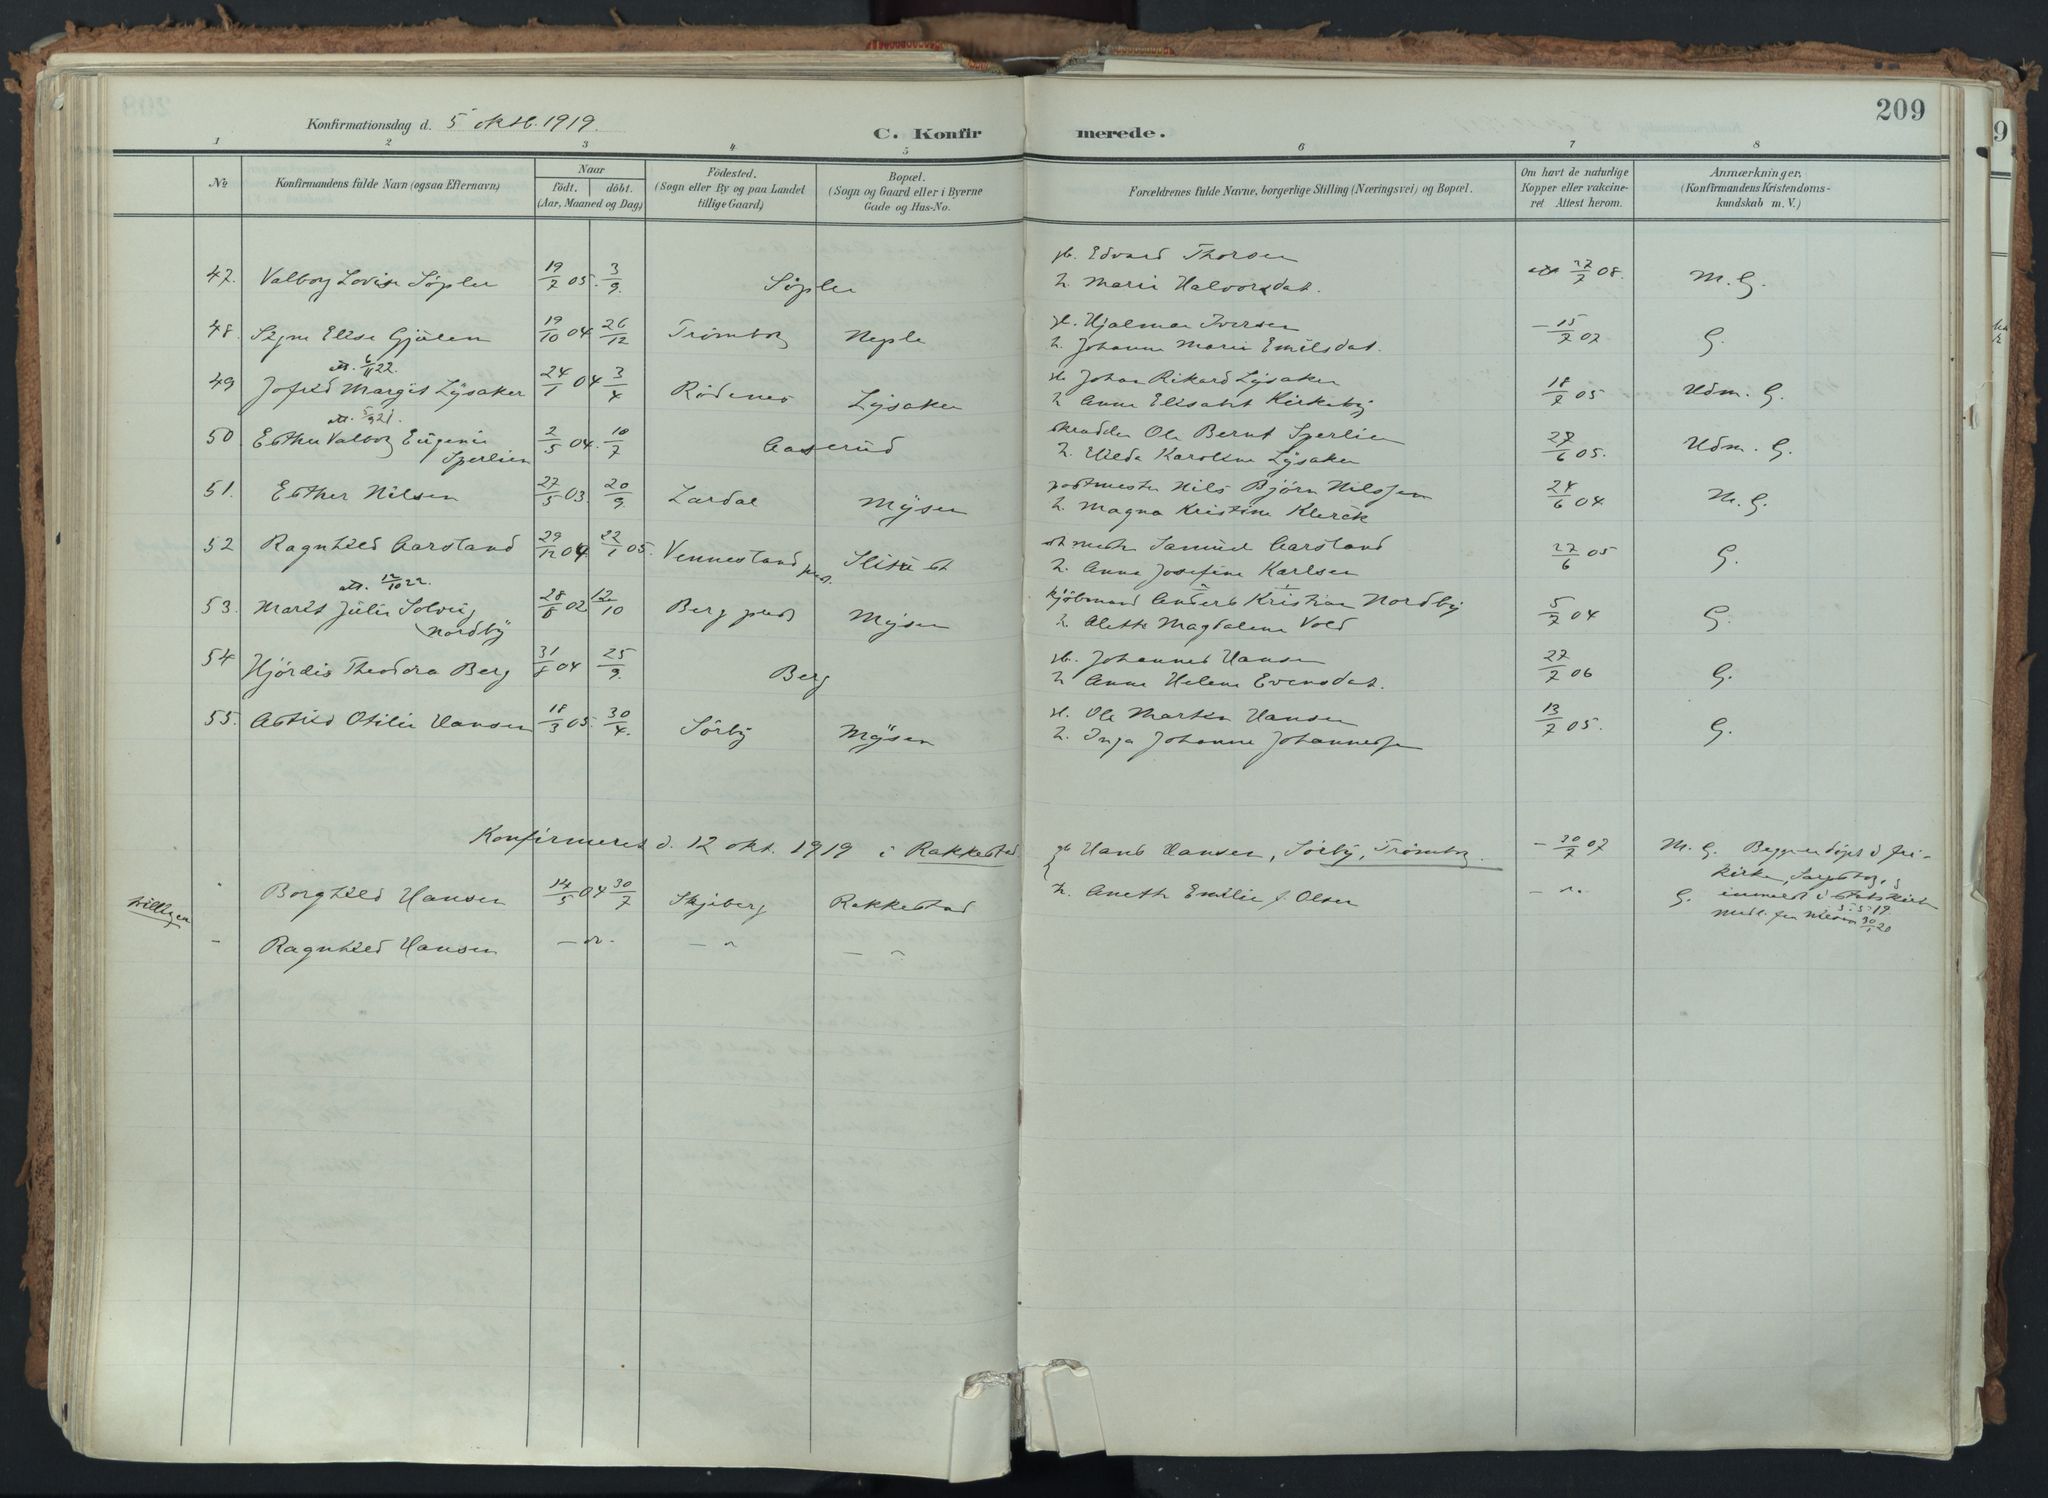 209
Konfirmationsdag d. 5 oktb. 1919.
C. Konfirmerede.
1 2 3 4 5 6 7 8
No
Konfirmandens fulde Navn (ogsaa Efternavn)
Naar
födt. döbt.
(Aar, Maaned og Dag)
Födested.
(Sogn eller By og paa Landet
tillige Gaard)
Bopæl.
(Sogn og Gaard eller i Byerne
Gade og Hus-No.
Forældrenes fulde Navne, borgerlige Stilling (Næringsvei) og Bopæl.
Om havt de naturlige
Kopper eller vakcine-
ret Attest herom.
Anmærkninger.
(Konfirmandens Kristendoms-
kundskab m. V.)
47. Valborg Lovise Söpler 19/7 05. 3/9. Söpler Edvard Thorsen 27/7 08. M. G.
h. Marie Halvorsdat.
48. Signe Elise Gjülen 19/10 04 26/12 Trömborg Neple Hjalmar Iversen 15/7 07 G.
h. Johanne Marie Emilsdat.
att. 6/11 22.
49 Jofrid Margit Lysaker 24/1 04 3/4 Rödenes Lysaker Johan Rikard Lysaker 18/7 05 Udm. G.
h. Anne Elisabet Kirkeby
att. 5/9 21.
50. Esther Valborg Eugenie 2/5 04. 10/7 Aaserud skrædder Ole Bernt Sperlien 27/6 05. Udm. G.
Sperlien h. Hilda Karoline Lysaker
51. Esther Nilsen 27/5 03. 20/9. Lardal Mysen postmester Nils Björn Nilssen 24/6 04 M. G.
h. Magna Kristine Klerck
52 Ragnhild Aarstand 29/12 04 22/1 05. Vennestand Samuel Aarstand 27/6 05 G.
h. Anna Josefine Karlsen
att. 12/10 22.
53. Marit Julie Solveig 28/8 02 12/10 Berg Mysen kjöbmand Anders Kristian Nordby 5/7 04 G.
Nordby h. Alette Magdalene Vold
54 Hjördis Theodora Berg 31/8 04 25/9. Berg Johannes Hansen 27/7 06 G.
h. Anne Helene Evensdat.
55. Astrid Otilie Hansen 18/3 05. 30/4. Sörby Mysen Ole Martin Hansen 13/7 05. G.
h. Inga Johanne Johannessen
Konfirmeret d. 12 okt. 1919 i Rakkestad
Hans Hansen, Sörby, Trömborg. – 30/7 07 M. G. Begge er döpt i fri-
kirken, Sarpsborg, og
tvillinger Borghild Hansen 14/5 04 30/7 Skjeberg Rakkestad h. Anette Emilie f. Olsen – " – G. innmeldt i statskirken
5-5-19.
30/1 20
– Ragnhild Hansen – " – – " – "